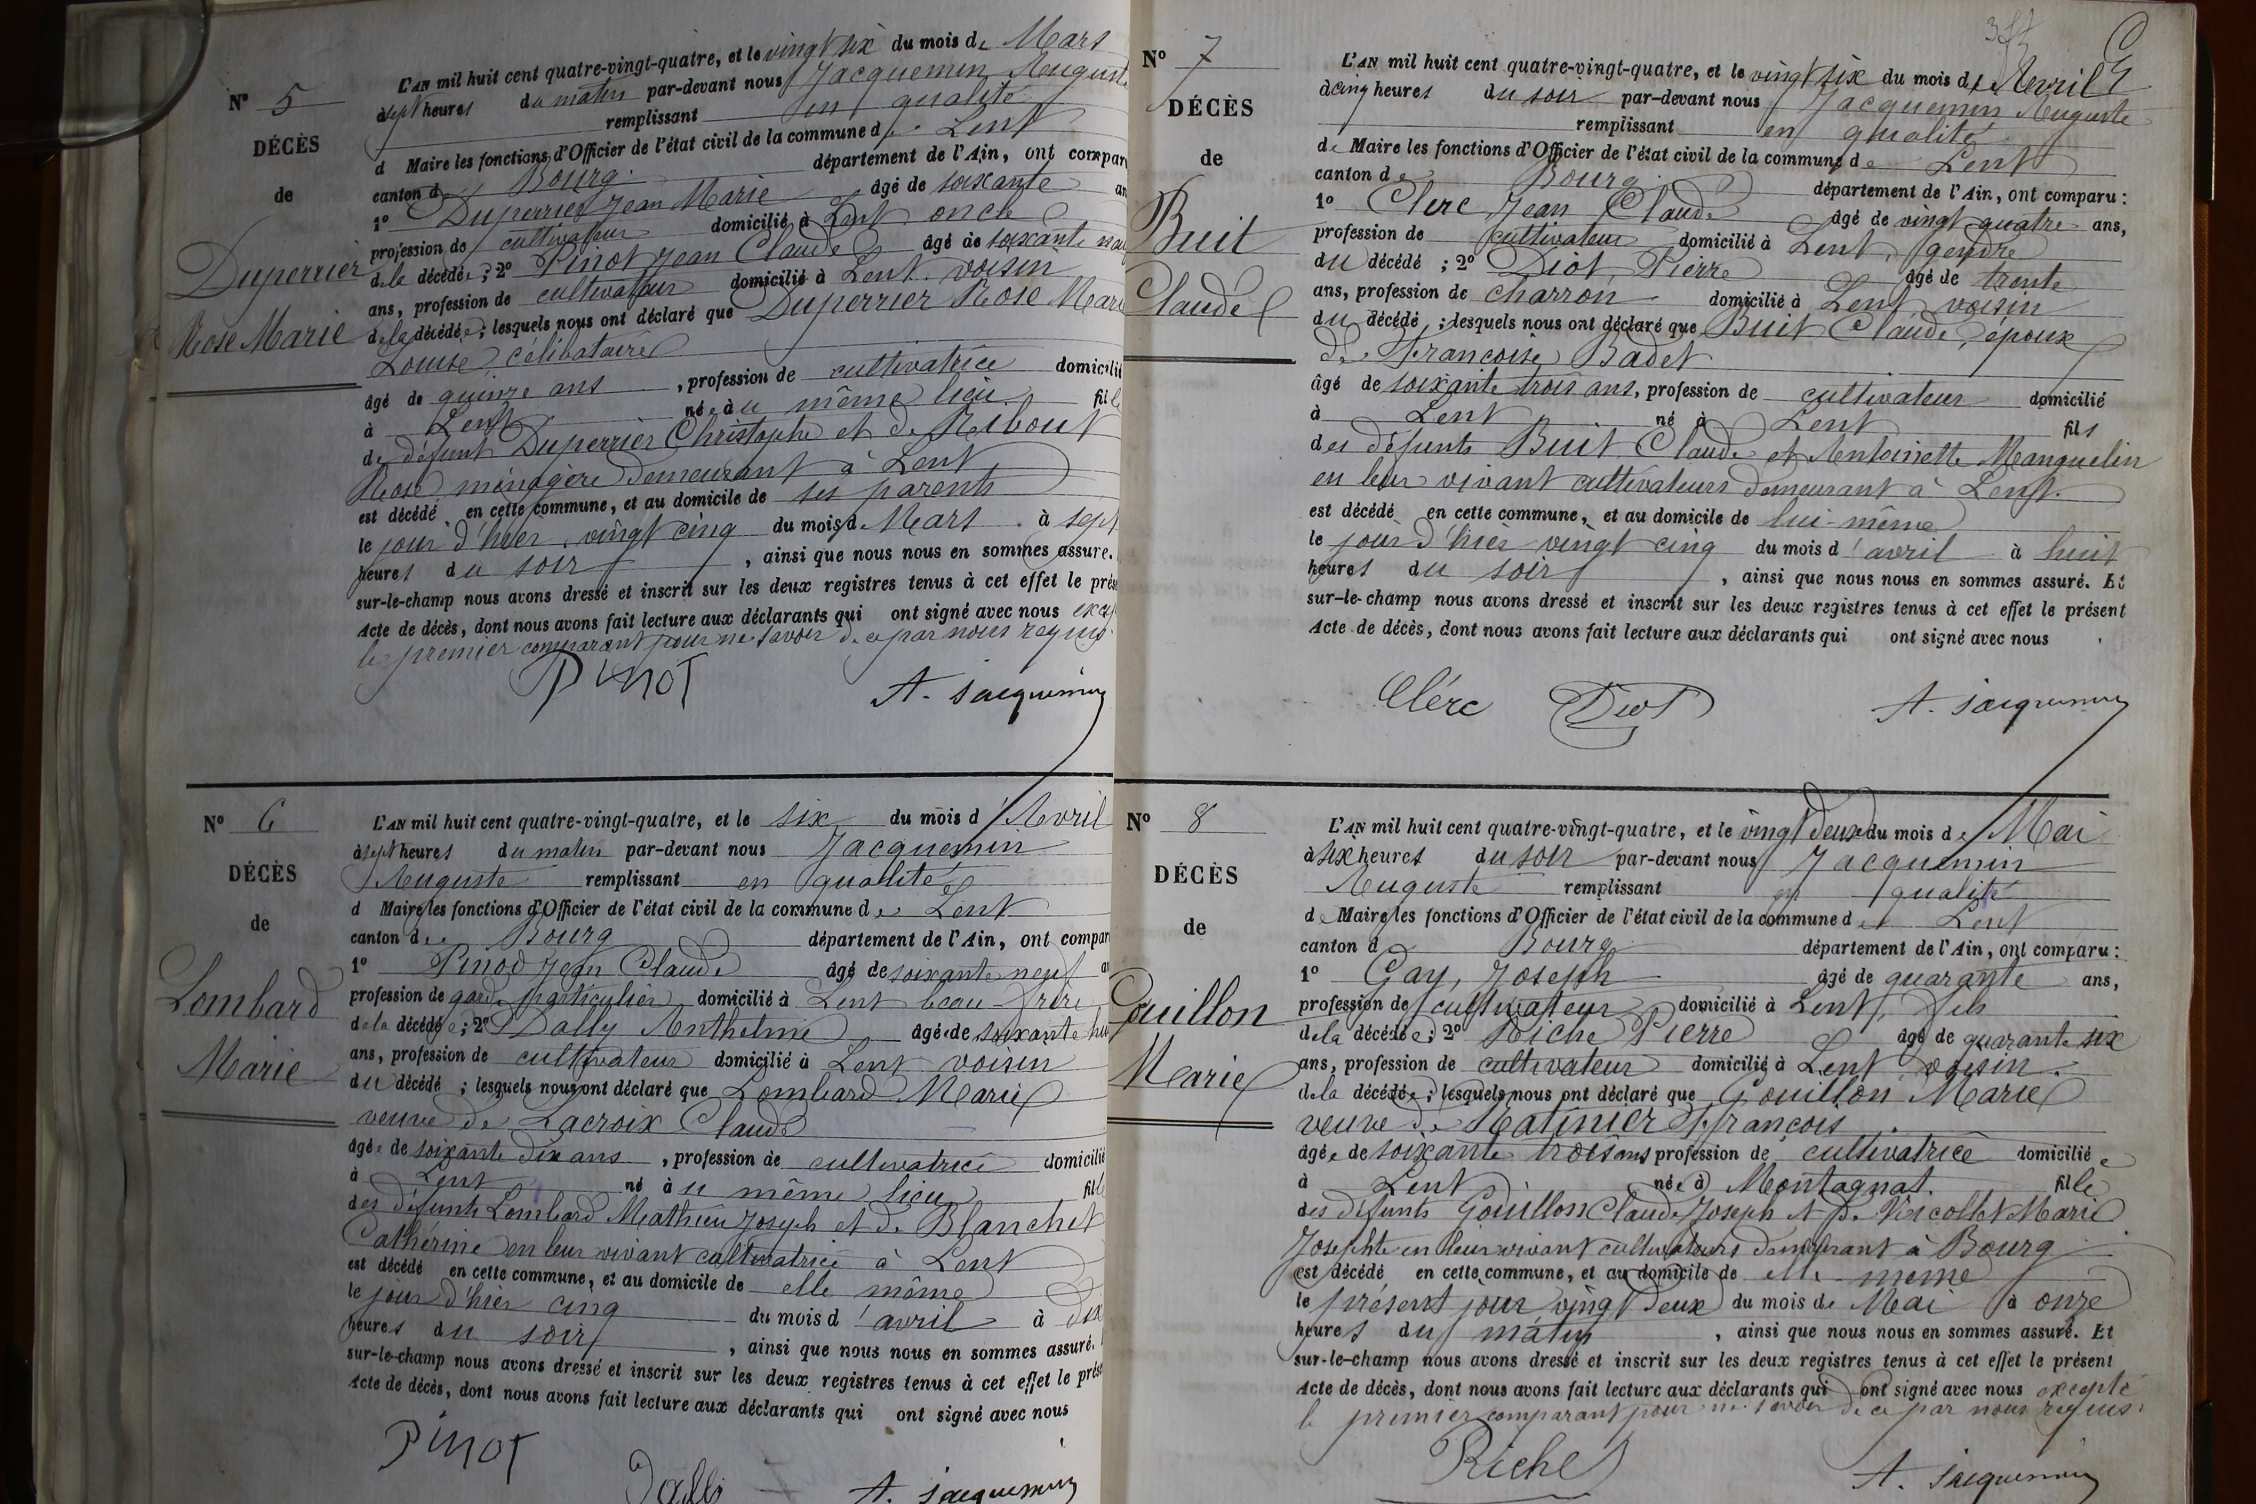 Nº 5
DÉCÈS
de
Duperrier
Rose Marie
L'AN mil huit cent quatre-vingt-quatre, et le vingt six du mois de Mars
à sept heures du matin par-devant nous Jacquemin Auguste
remplissant en qualité
d Maire les fonctions d'Officier de l'état civil de la commune de Lent
canton de Bourg département de l'Ain, ont compar
1º Duperrier Jean Marie âgé de soixante an
profession de cultivateur domicilié à Lent oncle
de la décédée ; 2º Pinot Jean Claude âgé de soixante
ans, profession de cultivateur domicilié à Lent voisin
de la décédée ; lesquels nous ont déclaré que Duperrier Rose Marie
Louise, célibataire
âgé de quinze ans, profession de cultivatrice domicilié
à Lent née au même lieu fille
de défunt Duperrier Christophe et de Ribout
Rose ménagère demeurant à Lent
est décédé en cette commune, et au domicile de ses parents
le jour d'hier vingt cinq du mois de Mars à sept
heures du soir, ainsi que nous nous en sommes assuré.
sur-le-champ nous avons dressé et inscrit sur les deux registres tenus à cet effet le prése
Acte de décès, dont nous avons fait lecture aux déclarants qui ont signé avec nous
le premier comparant pour ne savoir de ce par nous requis.
Pinot A. Jacquemin
Nº 6
DÉCÈS
de
Lombard
Marie
L'AN mil huit cent quatre-vingt-quatre, et le six du mois d'Avril
à sept heures du matin par-devant nous Jacquemin
Auguste remplissant en qualité
d Maire les fonctions d'Officier de l'état civil de la commune de Lent
canton de Bourg département de l'Ain, ont compar
1º Pinod Jean Claude âgé de soixante neuf an
profession de garde particulier domicilié à Lent beau-frère
de la décédée ; 2º Dally Anthelme âgé de soixante
ans, profession de cultivateur domicilié à Lent voisin
du décédé ; lesquels nous ont déclaré que Lombard Marie
veuve de Lacroix Claude
âgée de soixante dix ans, profession de cultivatrice domicilié
à Lent né au même lieu fille
des défunts Lombard Mathieu Joseph et de Blanchet
Cathérine en leur vivant cultivatrice à Lent
est décédé en cette commune, et au domicile de elle même
le jour d'hier cinq du mois d'avril à dix
heures du soir, ainsi que nous nous en sommes assuré.
sur-le-champ nous avons dressé et inscrit sur les deux registres tenus à cet effet le prése
Acte de décès, dont nous avons fait lecture aux déclarants qui ont signé avec nous
Pinot
Dally A. Jacquemin
Nº 7
DÉCÈS
de
Buit
Claude
L'AN mil huit cent quatre-vingt-quatre, et le vingt six du mois d'Avril
à cinq heures du soir par-devant nous Jacquemin Auguste
remplissant en qualité
de Maire les fonctions d'Officier de l'état civil de la commune de Lent
canton de Bourg département de l'Ain, ont comparu :
1º Clerc Jean Claude âgé de vingt quatre ans,
profession de cultivateur domicilié à Lent, gendre
du décédé ; 2º Diot, Pierre âgé de trente
ans, profession de charron domicilié à Lent voisin
du décédé ; lesquels nous ont déclaré que Buit Claude, époux
de Françoise Badet
âgé de soixante trois ans, profession de cultivateur domicilié
à Lent né à Lent fils
des défunts Buit Claude et Antoinette Manguelin
en leur vivant cultivateurs demeurant à Lent.
est décédé en cette commune, et au domicile de lui-même
le jour d'hier vingt cinq du mois d'avril à huit
heures du soir, ainsi que nous nous en sommes assuré. Et
sur-le-champ nous avons dressé et inscrit sur les deux registres tenus à cet effet le présent
Acte de décès, dont nous avons fait lecture aux déclarants qui ont signé avec nous
Clérc Diot A. Jacquemin
Nº 8
DÉCÈS
de
Gouillon
Marie
L'AN mil huit cent quatre-vingt-quatre, et le vingt deux du mois de Mai
à six heures du soir par-devant nous Jacquemin
Auguste remplissant en qualité
de Maire les fonctions d'Officier de l'état civil de la commune de Lent
canton d Bourg département de l'Ain, ont comparu :
1º Gay, Joseph âgé de quarante ans,
profession de cultivateur domicilié à Lent, fils
de la décédée ; 2º Riche Pierre âgé de quarante six
ans, profession de cultivateur domicilié à Lent voisin.
de la décédée ; lesquels nous ont déclaré que Gouillon Marie
veuve de Ratinier François
âgée de soixante trois ans profession de cultivatrice domicilié e
à Lent née à Montagnat. fille
des défunts Gouillon Claude Joseph et de Marie
Josephte en leur vivant cultivateurs demeurant à Bourg
est décédé en cette commune, et au domicile de elle même
le présent jour vingt deux du mois de Mai à onze
heures du matin, ainsi que nous nous en sommes assuré. Et
sur-le-champ nous avons dressé et inscrit sur les deux registres tenus à cet effet le présent
Acte de décès, dont nous avons fait lecture aux déclarants qui ont signé avec nous excepté
le premier comparant pour ne savoir de ce par nous requis.
Riche A. Jacquemin